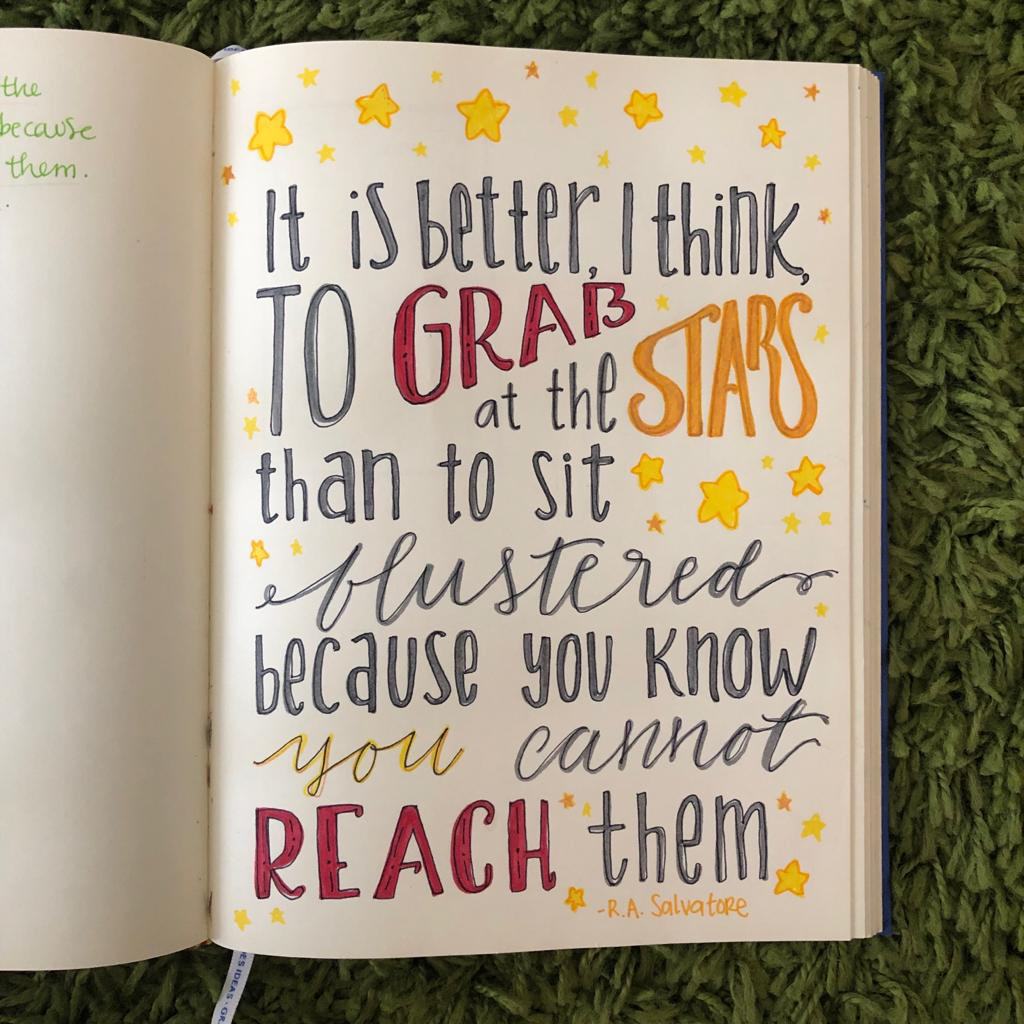 the
because
them.
It is better, I think,
TO GRAB
at the STARS
than to sit
blustered
because you know
you cannot
REACH them
-R.A. Salvatore
ES IDEAS · GR